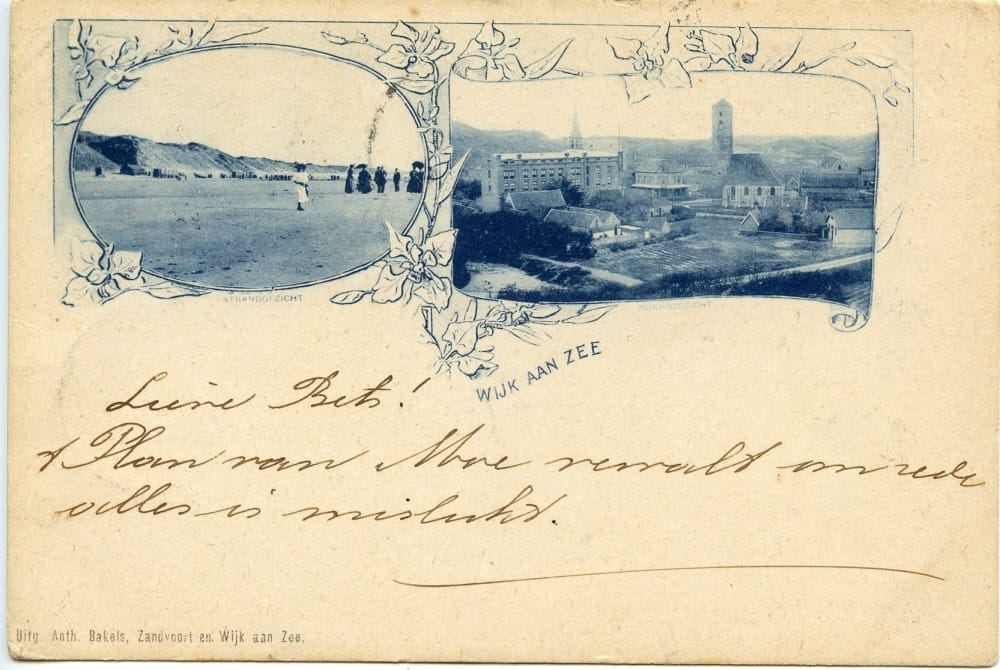 STRANDGEZICHT
DORPSGEZICHT
WIJK AAN ZEE
Lieve Bets!
't Plan van Moe vervalt om rede
alles is mislukt.
Uitg. Anth. Bakels, Zandvoort en Wijk aan Zee.